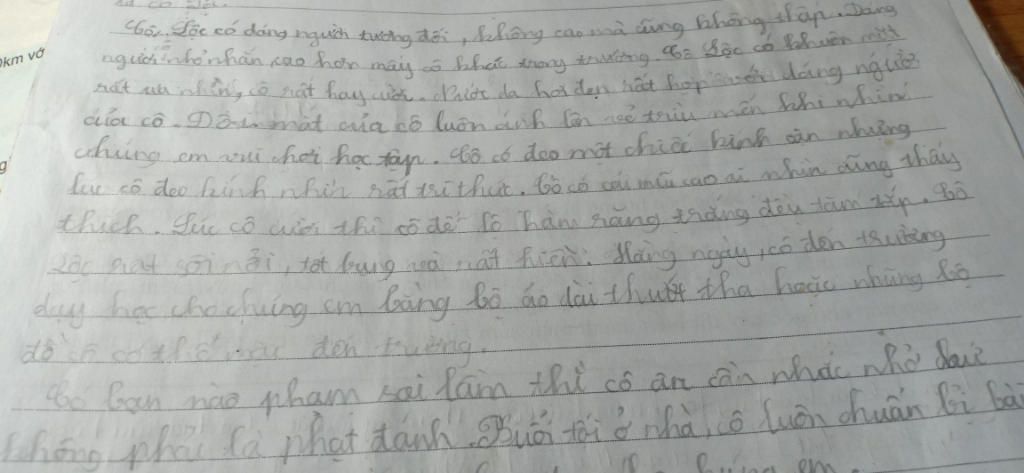 km vớ
Cô Lộc có dáng người tương đối, không cao mà cũng không thấp. Dáng
người nhỏ nhắn, cao hơn mấy cô khác trong trường. Cô Lộc có khuôn mặt
rất ưa nhìn, cô rất hay cười. Nước da hơi đen rất hợp với dáng người
của cô. Đôi mắt của cô luôn ánh lên vẻ trìu mến khi nhìn
chúng em vui chơi học tập. Cô có đeo một chiếc kính cận những
lúc cô đeo kính nhìn rất tri thức. Cô có cái mũi cao ai nhìn cũng thấy
thích. Lúc cô cười thì cô để lộ hàm răng trắng đều tăm tắp. Cô
Lộc rất sôi nổi, tốt bụng và rất hiền. Hàng ngày, cô đến trường
dạy học cho chúng em bằng bộ áo dài thướt tha hoặc những bộ
đồ cô có thể mặc đến trường.
Có bạn nào phạm sai lầm thì cô ân cần nhắc nhở
không phải là phạt đánh. Buổi tối ở nhà, cô luôn chuẩn bị bài